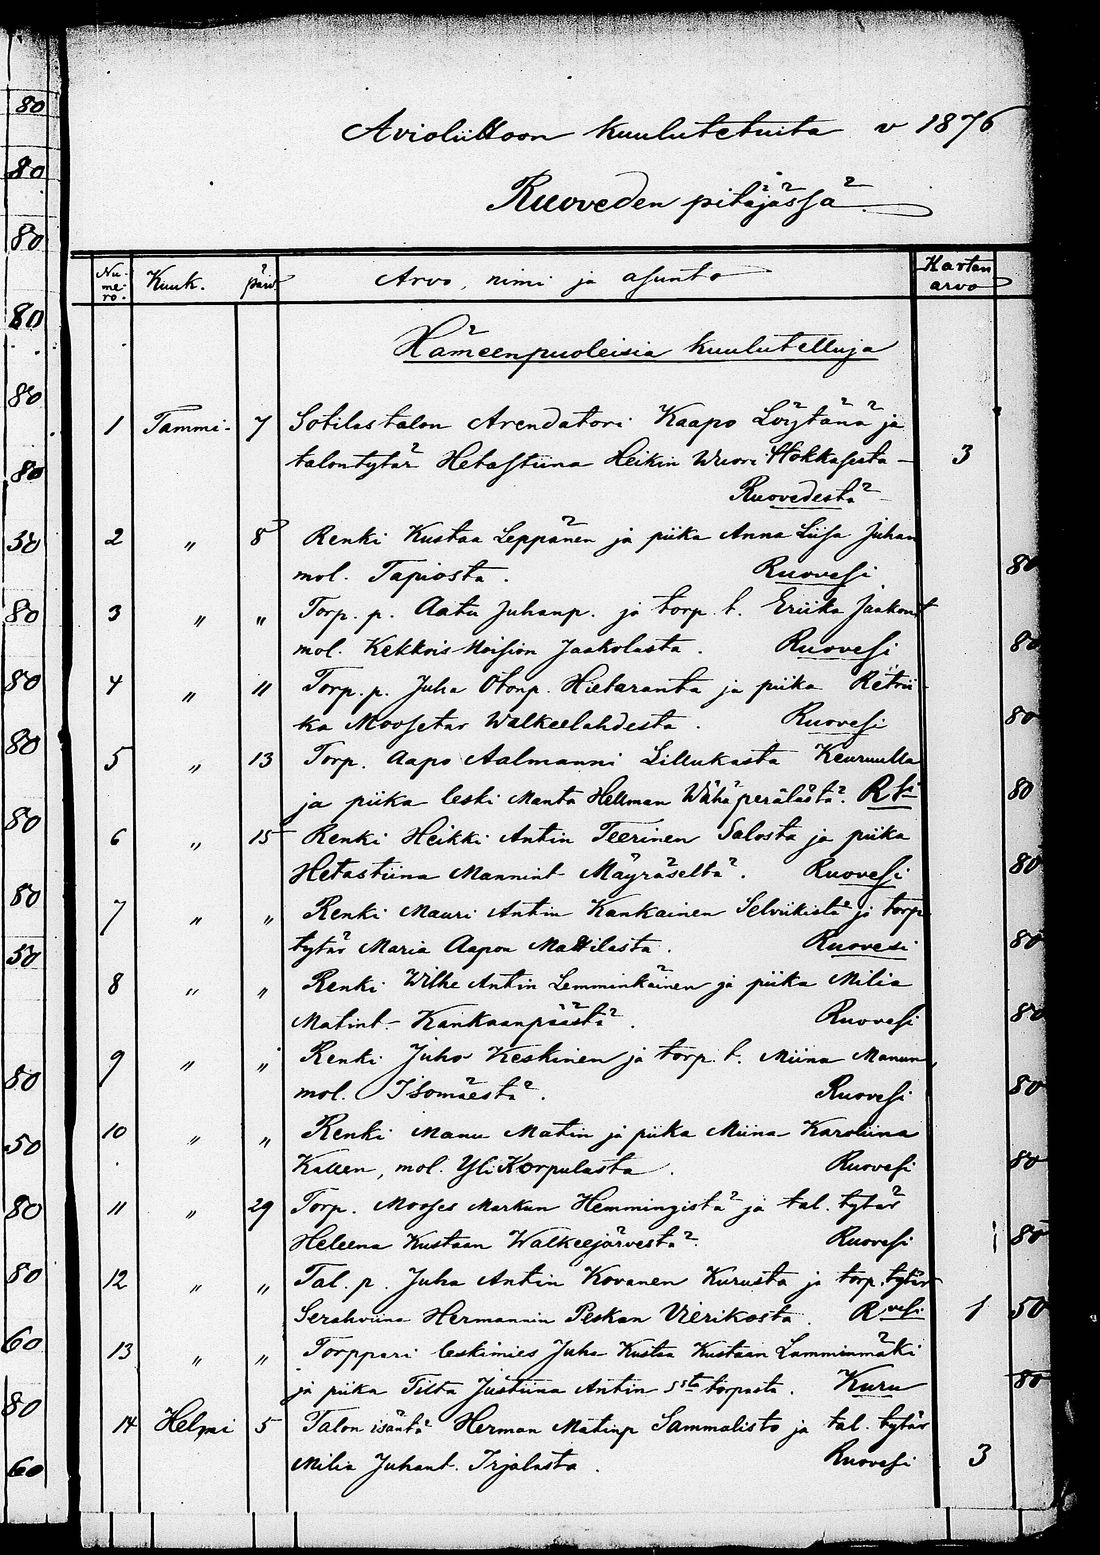 80
80
80
80
80
80
50
80
80
80
80
80
50
80
50
80
80
60
80
60
Avioliittoon kuulutetuita v 1876
Ruoveden pitäjässä
Nu-
me-
ro.
Kuuk.
päiv
Arvo, nimi ja asunto
Kartan
arvo
Hämeenpuoleisia kuulutelluja
1 Tammi- 7 Sotilastalon Arendatori Kaapo Löytänä ja
talontytär Hetastiina Heikin Wuori - 3
Ruovedestä
2 " 8 Renki Kustaa Leppänen ja piika Anna Liisa Juhan
mol. Tapiosta. Ruovesi 80
3 " " Torp. p. Aatu Juhanp. ja torp. t. Eriika Jaakont
mol. Kekkois Jaakolasta. Ruovesi 80
4 " 11 Torp. p. Juha Otonp. Hietaranta ja piika Retrii-
ka Moosetar Walkeelahdesta. Ruovesi 80
5 " 13 Torp. Aapo Aalmanni Lillukasta Keuruulla
ja piika leski Manta Hellman Wähäperälästä. R si 80
6 " 15 Renki Heikki Antin Teerinen Salosta ja piika
Hetastiina Mannint Mäyräseltä. Ruovesi 80
7 " " Renki Mauri Antin Kankainen Selviikistä ja torp
tytär Maria Aapon Mattilasta. Ruovesi 80
8 " " Renki Wilhe Antin Lemminkäinen ja piika Milia
Matint- Kankaanpäästä. Ruovesi 80
9 " " Renki Juho Keskinen ja torp. t. Miina Manun,
mol. Isomäestä. Ruovesi 80
10 " " Renki Manu Matin ja piika Miina Karoliina
Kallen, mol. Yli Korpulasta. Ruovesi 80
11 " 29 Torp. Mooses Markun Hemmingistä ja tal. tytär
Heleena Kustaan Walkeejärvestä. Ruovesi 80
12 " " Tal. p. Juha Antin Kovanen Kurusta ja torp. tytär
Serahviina Hermannin Peskan Vierikosta. R vesi 1 50
13 " " Torppari leskimies Juha Kustaa Kustaan Lamminmäki
ja piika Tilta Justiina Antin s sta torpasta. Kuru 80
14 Helmi 5 Talon isäntä Herman Matinp Sammalisto ja tal. tytär
Milia Juhant. Irjalasta. Ruovesi 3